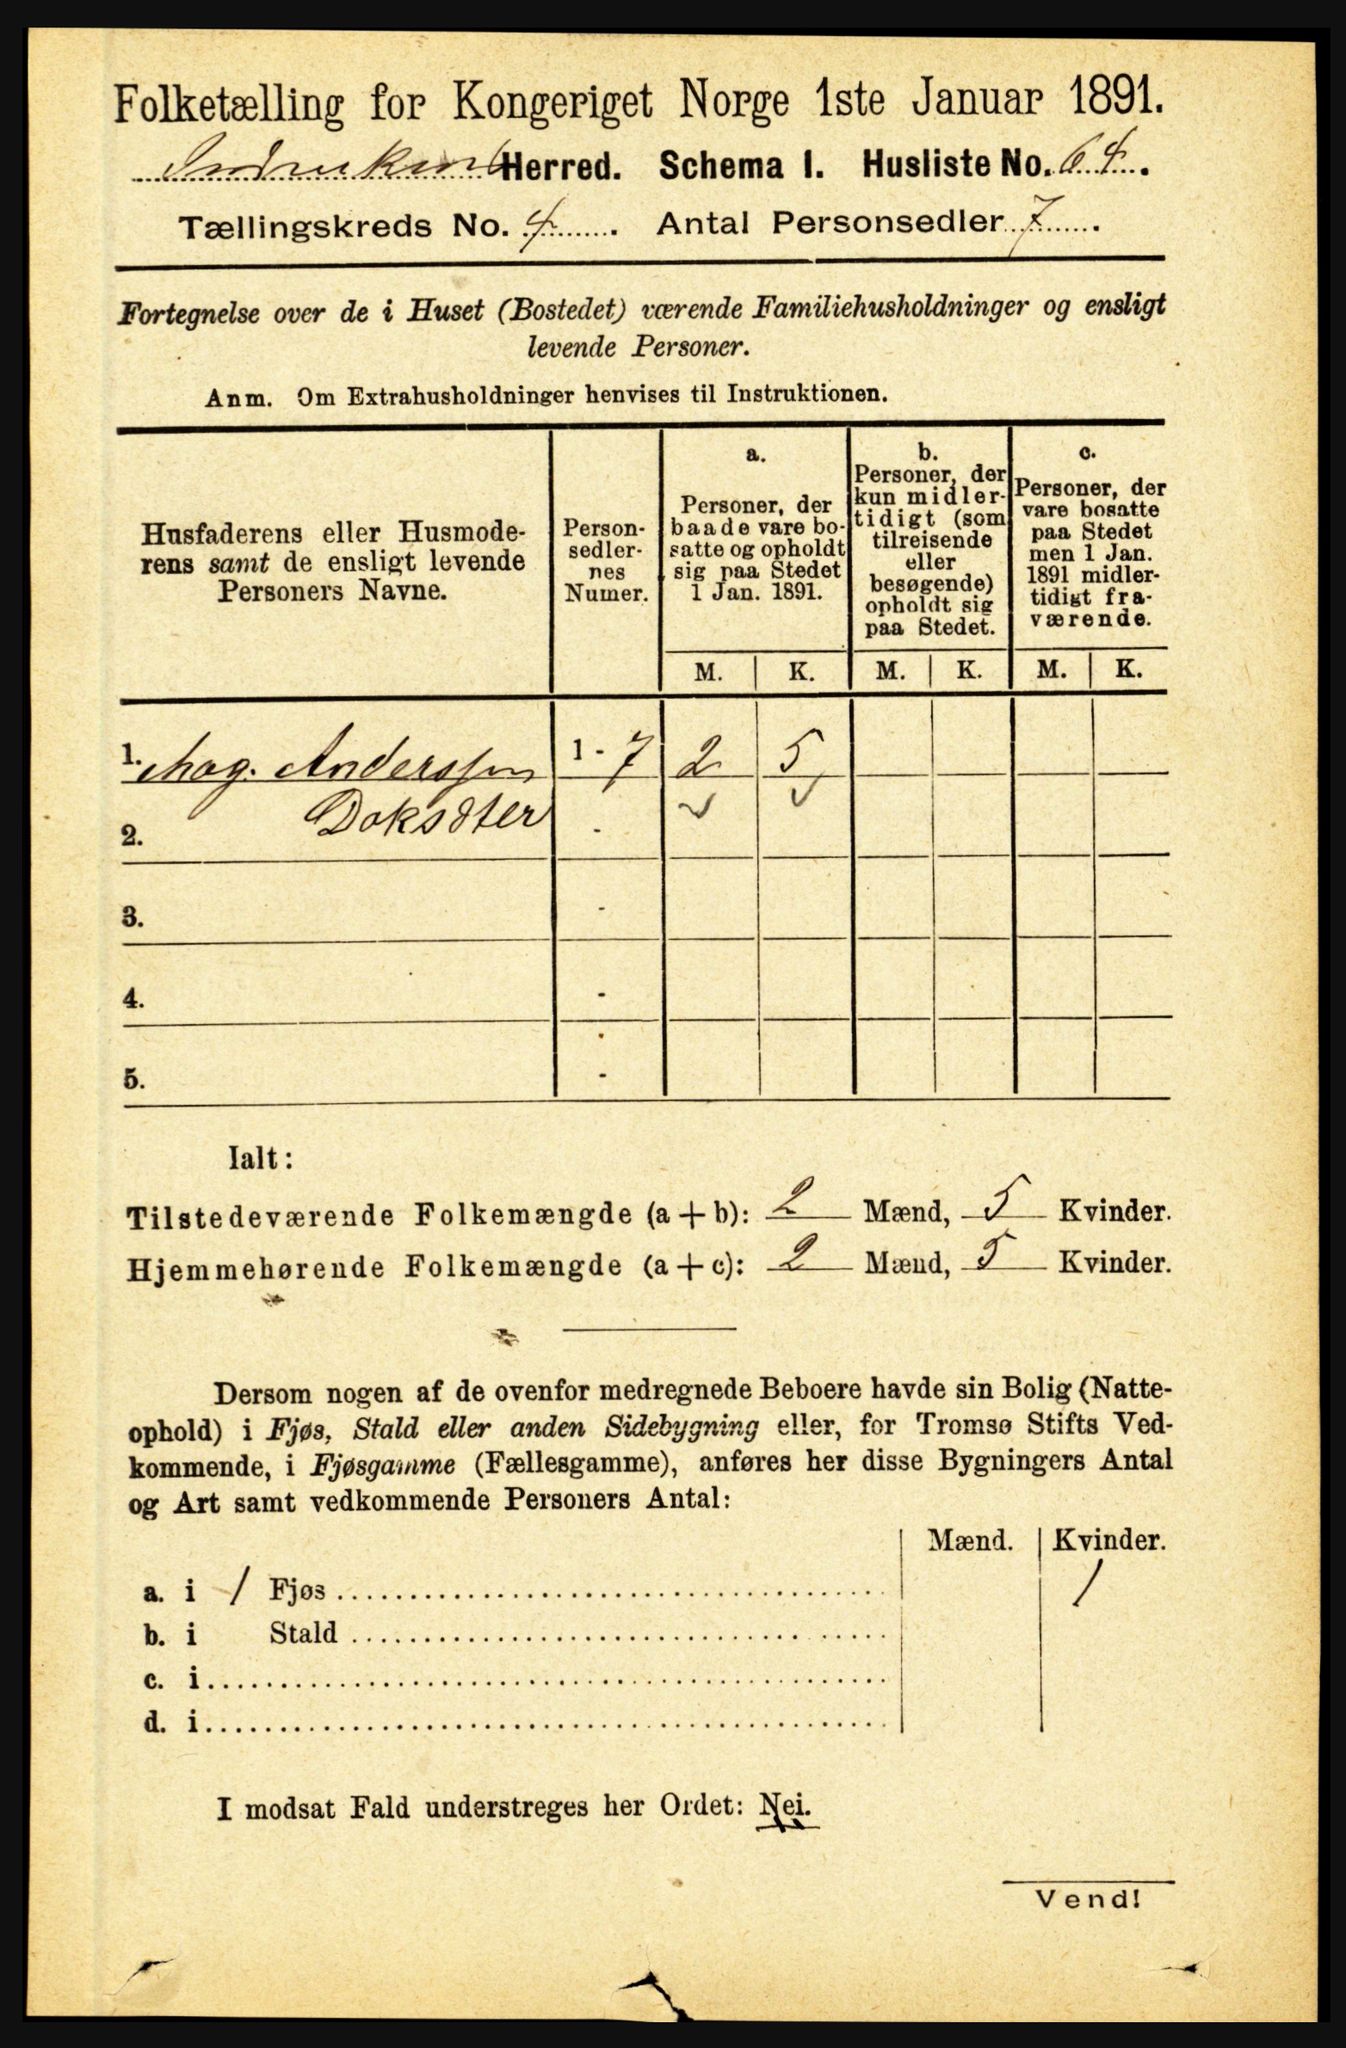 Folketælling for Kongeriget Norge 1ste Januar 1891.
Herred. Schema I. Husliste No. 64.
Tællingskreds No. 4. Antal Personsedler 7.
Fortegnelse over de i Huset (Bostedet) værende Familiehusholdninger og ensligt
levende Personer.
Anm. Om Extrahusholdninger henvises til Instruktionen.
Husfaderens eller Husmode-
rens samt de ensligt levende
Personers Navne.
Person-
sedler-
nes
Numer.
a.
Personer, der
baade vare bo-
satte og opholdt
sig paa Stedet
1 Jan. 1891.
b.
Personer, der
kun midler-
tidigt (som
tilreisende
eller
besøgende)
opholdt sig
paa Stedet.
c.
Personer, der
vare bosatte
paa Stedet
men 1 Jan.
1891 midler-
tidigt fra-
værende.
M. K. M. K. M. K.
1. Mag. Anderssen 1 - 7 2 5
2. Doksæter -
3. -
4. -
5. -
Ialt:
Tilstedeværende Folkemængde (a + b): 2 Mænd, 5 Kvinder.
Hjemmehørende Folkemængde (a + c): 2 Mænd, 5 Kvinder.
Dersom nogen af de ovenfor medregnede Beboere havde sin Bolig (Natte-
ophold) i Fjøs, Stald eller anden Sidebygning eller, for Tromsø Stifts Ved-
kommende, i Fjøsgamme (Fællesgamme), anføres her disse Bygningers Antal
og Art samt vedkommende Personers Antal:
Mænd. Kvinder.
a. i 1 Fjøs 1
b. i Stald
c. i
d. i
I modsat Fald understreges her Ordet: Nei.
Vend!